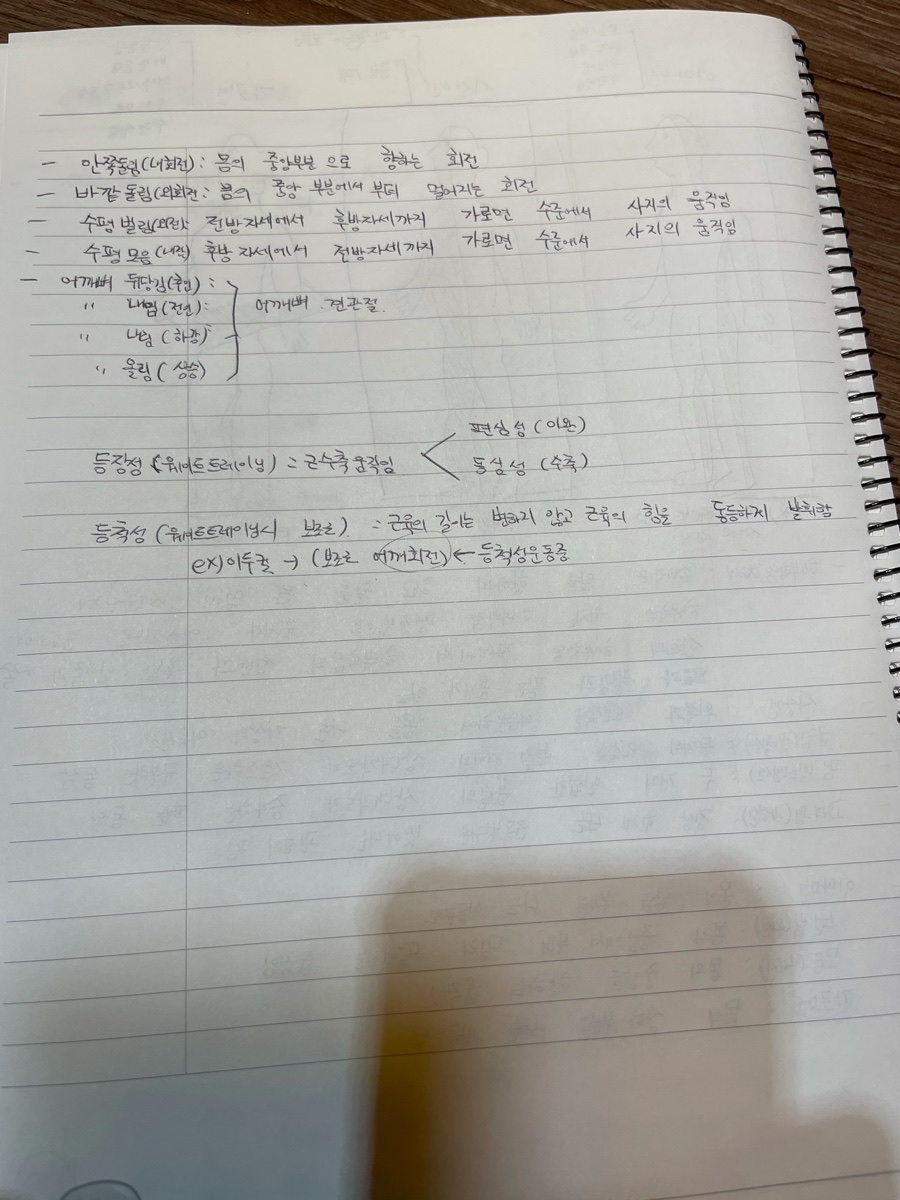 - 안쪽돌림(내회전): 몸의 중앙부분으로 향하는 회전
- 바깥돌림(외회전: 몸의 중앙 부분에서부터 멀어지는 회전
- 수평벌림(외전): 전방자세에서 후방자세까지 가로면 수준에서 사지의 움직임
- 수평모음(내전) 후방자세에서 전방자세까지 가로면 수준에서 사지의 움직임
- 어깨뼈 뒤당김(후인) :
〃 내밈(전인): 어깨뼈 견관절.
〃 내림(하강)
〃 올림(상승)
편심성(이완)
등장성(웨이트트레이닝) = 근수축움직임
동심성(수축)
등척성(웨이트트레이닝시 보조근) = 근육의 길이는 변하지 않고 근육의 힘을 동등하게 발휘함
ex)이두컬 → (보조근 어깨회전) ← 등척성운동중